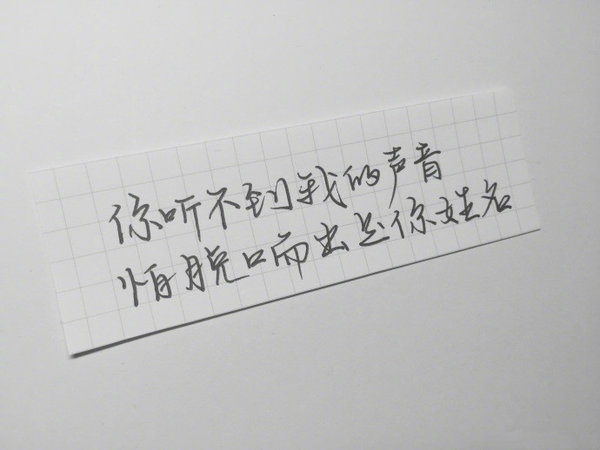 你听不到我的声音
怕脱口而出是你姓名